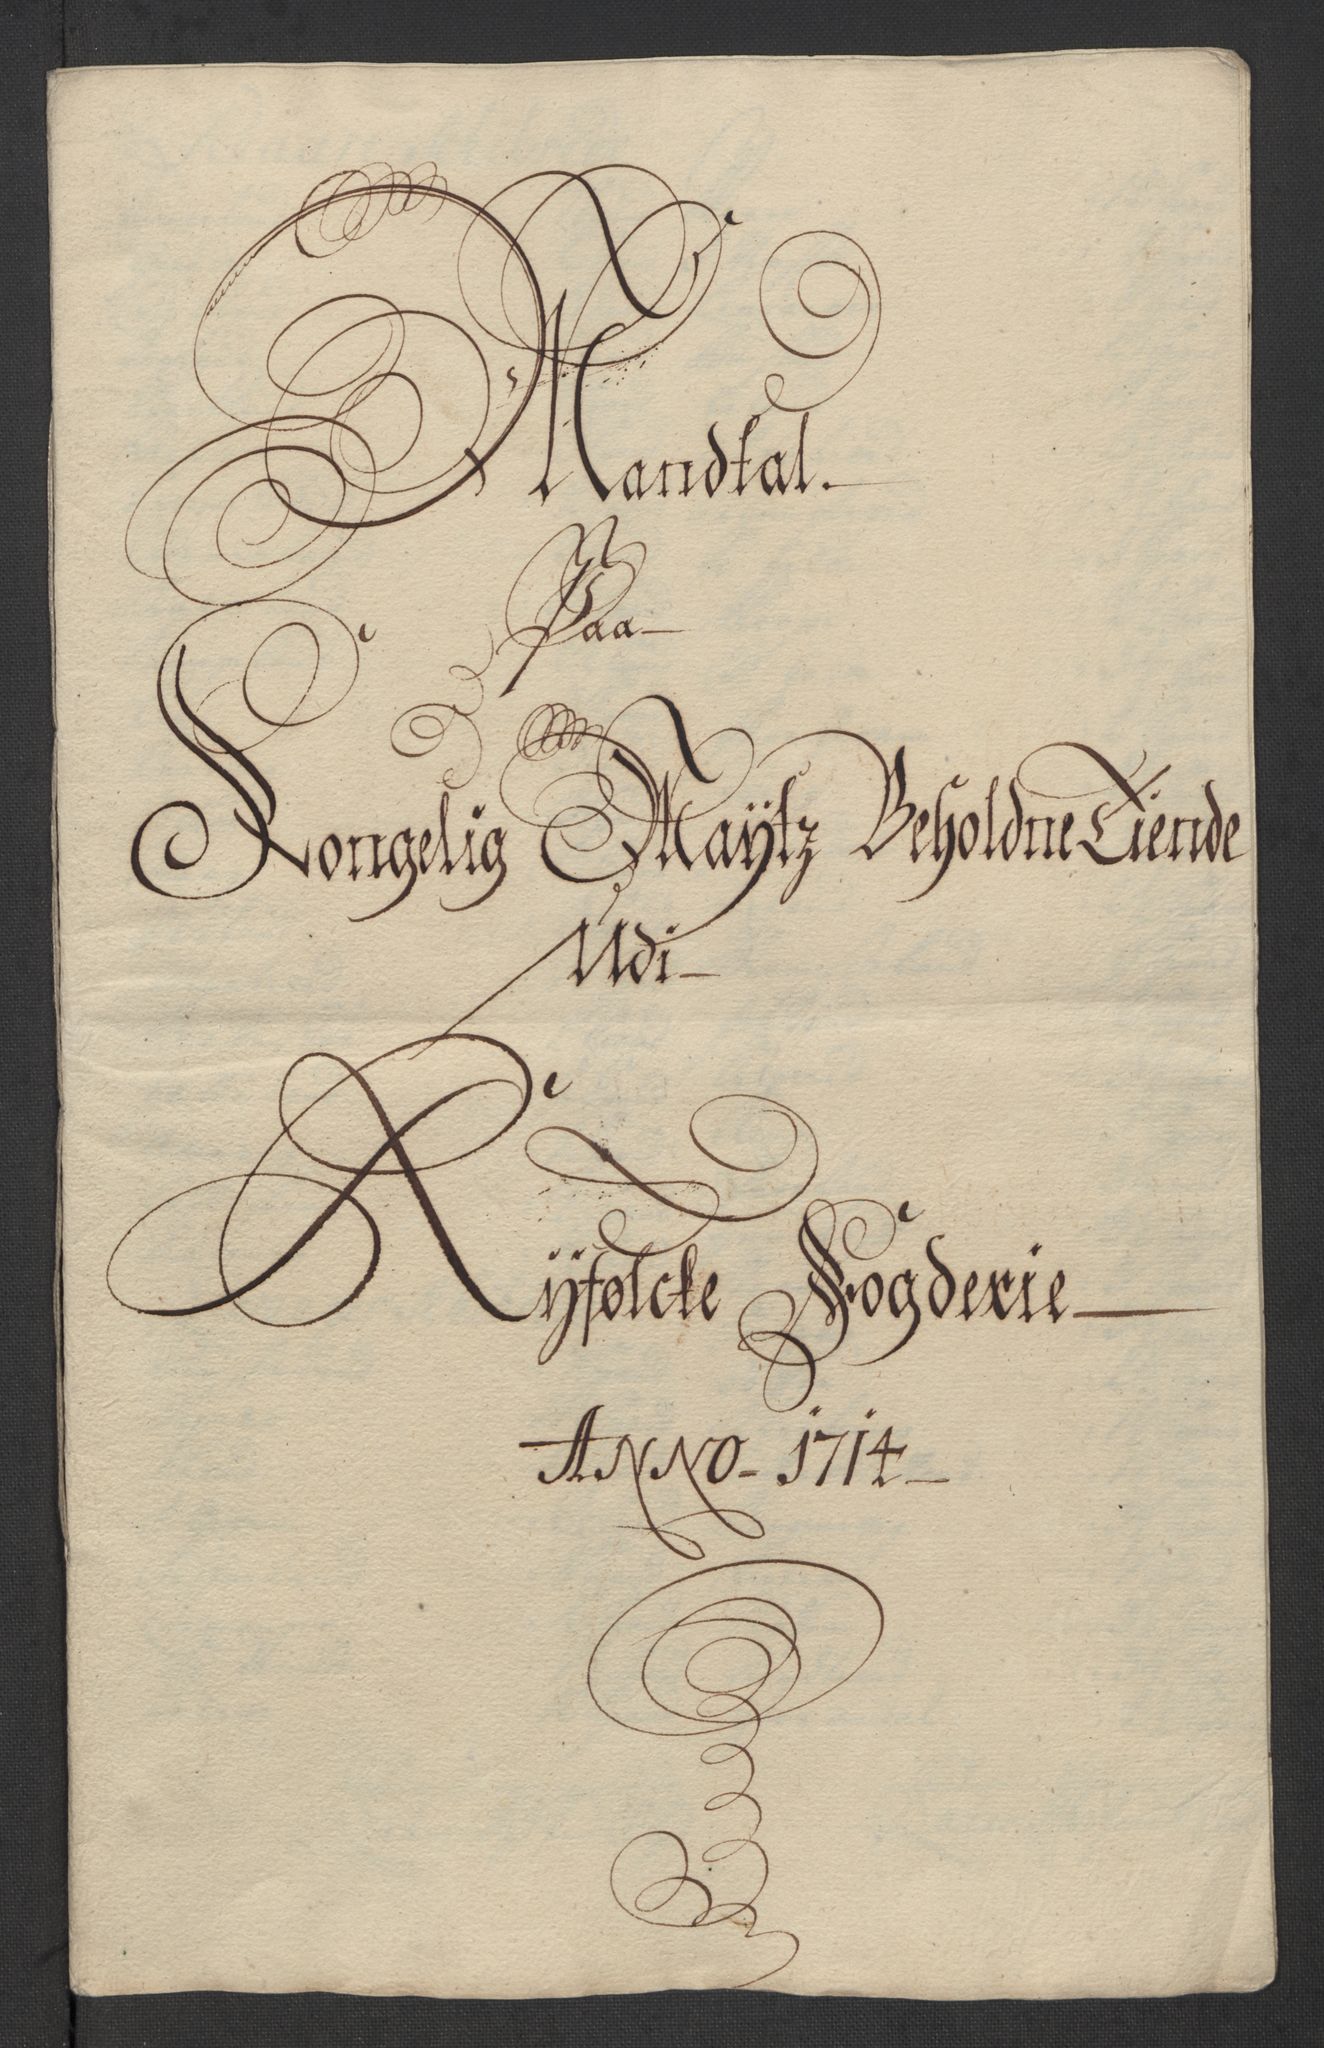 Mandtal.
Paa
Kongelig Maÿtz Beholdne Tiende
Udi
Rÿfølcke Fogderie
ANNO - 1714